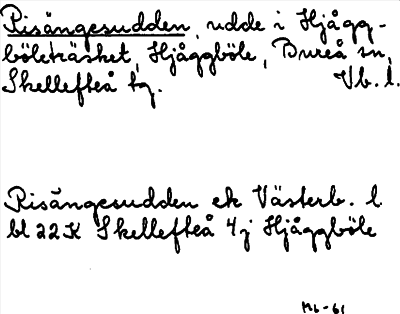 Risängesudden, udde i Hjågg-
böleträsket, Hjåggböle, Bureå sn,
Skellefteå tg. Vb. l.
Risängesudden ek Västerb. l
bl 22K Skellefteå 4j Hjåggböle
-61